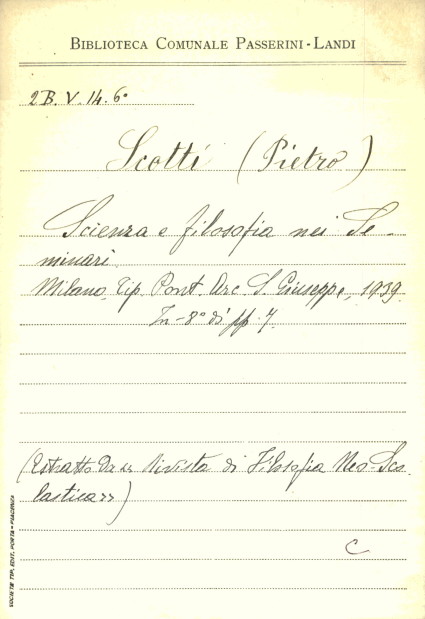 BIBLIOTECA COMUNALE PASSERINI-LANDI
2B. V. 14. 6°
Scotti (Pietro)
Scienza e filosofia nei Se-
minari.
Milano, Tip. Pont. Arc. S. Giuseppe, 1939.
In-8° di pp. 7.
(Estratto da "Rivista di Filosofia Neo-Sco
lastica")
C
SOCIETÀ TIP. EDIT. PORTA - PIACENZA